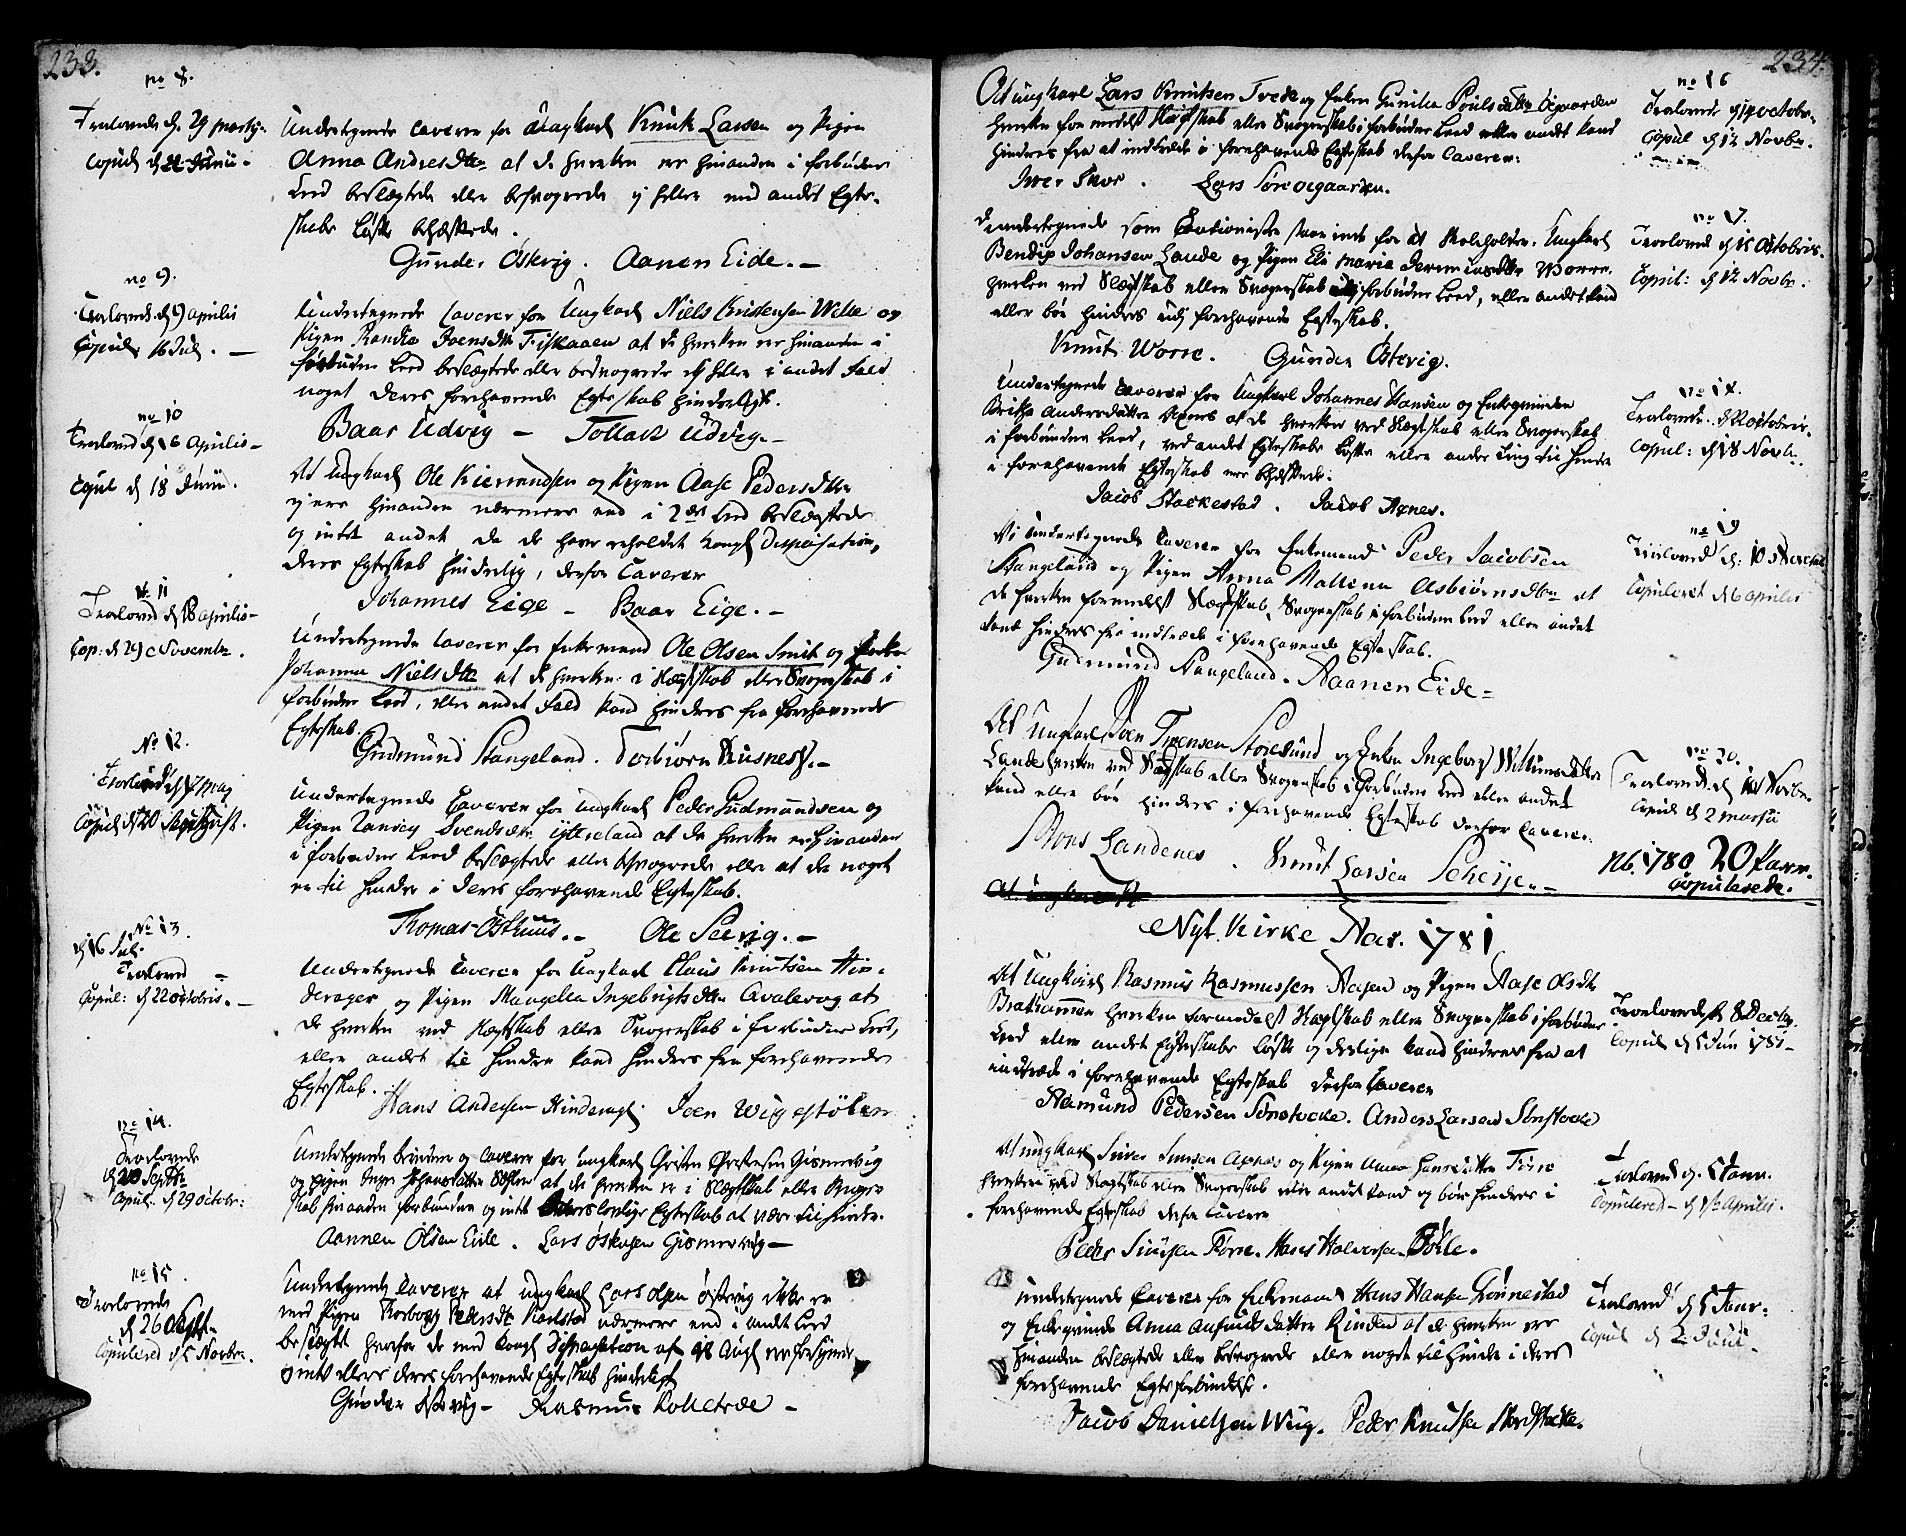 233.
no 8.
Trolovede d. 29 martj.
Copul d 22 Junii.
Undertegnede Caverer for Ungkarl Knut Larsen og Pigen
Anna Andresdttr at de hverken ere hinanden i forbuden
Leed beslægtede eller besvogrede ej heller ved andet Egte-
skabs Løfte behæftede.
Gunder Östevig. Aanen Eide.
no 9.
Trolovede d 9 aprilis
Copul 16 Jul.
Undertegnede Caverer for Ungkarl Niels Kristensen Welle og
Pigen Randia Joensdttr Fiskaaen at de hverken ere hinanden i
forbuden Leed beslægtede eller besvogrede ej heller i andet Fald
noget deres forehavende Egteskab hinderligt.
Baar Udvig Tollak Udvig.
no 10
Trolovede d 16 Aprilis
Copul d 18 Junii.
At Ungkarl Ole Kierrandsen og Pigen Aase Pedersdttr
ej ere hinanden nærmere end i 2det Leed beslægtede
og intet andet da de have erholdet kongl Dispensation,
deres Egteskab hinderlig, derfor Caverer
Johannes Eige Baar Eige.
No 11
Trolovede d 18 Aprilis
Cop: d 29 Novembr.
Undertegnede Caverer for Enkemand Ole Olsen Smit og Enken
Johanna Nielsdttr at de hverken i Slægtskab eller Svogerskab i
forbuden Leed, eller andet Fald kand hindres fra forehavende
Egteskab.
Gudmund Stangeland. Torbiørn Husnes.
No 12.
Trolovede d 7 Maj
Copul d 20 August.
Undertegnede Caverer for Ungkarl Peder Gudmundsen og
Pigen Svendsdttr Ytteland at de hverken ere hinanden
i forbuden Leed beslægtede eller besvogrede eller at de noget
er til hinder i deres forehavende Egteskab.
Thomas Östhuus. Ole Seevig.
No 13
d 16 Jul.
Trolovede
Copul: d 22 octobris.
Undertegnede Caverer for Ungkarl Claus Knutsen Hin-
derager og Pigen Mangelea Ingebrigtsdttr Qvalevog at
de hverken ved Slægtskab eller Svogerskab i forbuden Leed,
eller andet til hinder kand hindres fra forehavende
Egteskab.
Hans Andersen Hinderagr. Joen Wigestölen
no 14.
Trolovede
d 20 Septbr
Copul. d 29 octobr:
Undertegnede og Caverer for Ungkarl Christen Gismervig
og Pigen Inger Johannesdatter at de hverken er i Slægtskab eller Svoger-
skab hinanden forbunden og intet Egteskab at være til hinder.
Aannen Olsen Eide. Lars Gismervig
no 15
Trolovede
d 26 Sept.
Copulered d 5 Novbr.
Undertegnede Caverer at ungkarl Lars Olsen Östevig ikke er
med Pigen Torborg Pedersdttr nærmere end i andet Leed
beslægtet hvorfor de med kongl Dispensation af 18 Aug ere forsynede
og intet ellers deres forehavende Egteskab hinderligt
Gunder Östevig Rasmus Rolletræe
234.
no 16
Trolovede d 19 octobr.
Copul d 12 Novbr.
At Ungkarl Lars Knutsen Tvede og Enken Gunilla Poulsdatter Oegaarden
hverken formedelst Slægtskab eller Svogerskab i forbuden Leed eller andet kand
hindres fra at indtræde i forehavende Egteskab derfor Caverer:
Iver Skor. Lars Oegaarden.
no 17.
Trolovede d 15 Octobris.
Copul: d 12 Novbr.
Undertegnede som Cautionister staae inde for at Skoleholder, Ungkarl
Bendix Johansen Lande og Pigen Eli Maria Jermiasdttr Worre
hverken ved Slægtskab eller Svogerskab i forbuden Leed, eller andet kand
eller bør hindres udj forehavende Egteskab.
Knut Worre. Gunder Östevig.
no 18.
Trolovede. d 22 octobris.
Copul: d 18 Novbr.
Undertegnede Caverer for Ungkarl Johannes Hansen og Enkequinden
Britha Andersdatter Axnes at de hverken ved Slægtskab eller Svogerskab
i forbunden Leed, ved andet Egteskabs Løfte eller anden ting til hinder
i forehavende Egteskab ere behæftede.
Jacob Stockestad. Jacob Axnes.
no 19
Trolovede d: 10
Copuleret d 6 aprilis
Vi Undertegnede Caverer for Enkemand Peder Jacobsen
Stangeland og Pigen Anna Mallena Asbiørnsdttr at
de hverken formedelst Slægtskab, Svogerskab i forbuden Leed eller andet
kand hindres fra indtræde i forehavende Egteskab.
Gudmund Stangeland. Aanen Eide
no 20.
Trolovede. d Novbr.
Copul d 2 martii
At Ungkarl Joen Stoesund og Enken Ingeborg Willumsdatter
Lande hverken ved Slægtskab eller Svogerskab i forbuden Leed eller andet
kand eller bør hindres i forehavende Egteskab derfor Caverer.
Mons Landenes. Knut Larsen
Nb. 1780 20 Parr.
Copulerede.
Nyt Kirke Aar. 1781
Trolovede d. 8 Decbr.
Copul d 5 Jun 1781
At Ungkarl Rasmus Rasmussen Aasen og Pigen Aase Olsdtr
Bratthammer hverken formedelst Slægtskab eller Svogerskab i forbuden
Leed eller andet Egteskabs Løfte og deslige kand hindres fra at
indtræde i forehavende Egteskab derfor Caverer
Aamund Pedersen Sönstocke. Anders Larsen Sönstocke
Trolovede d. 5 Janr.
Copulered d 17 Aprilis.
At ungkarl Siver Simsen Axnes og Pigen Anna Hansdatter Före
hverken ved Slægtskab eller Svogerskab eller andet kand og bør hindres i
forehavende Egteskab derfor Caverer
Peder Simsen Före. Hans Halversen Bökle.
Trolovede d 5 Janr.
Copul d 2 Junii.
Undertegnede Caverer for Enkemand Hans Hansen Grönnestad
og Enkequinde Anna datter Rinden at de hverken ere
hinanden beslægtede eller besvogrede eller noget til hinder i deres
forehavende Egteforbindelse.
Jacob Danielsen Wiig. Peder Knutsen Nordstocke.